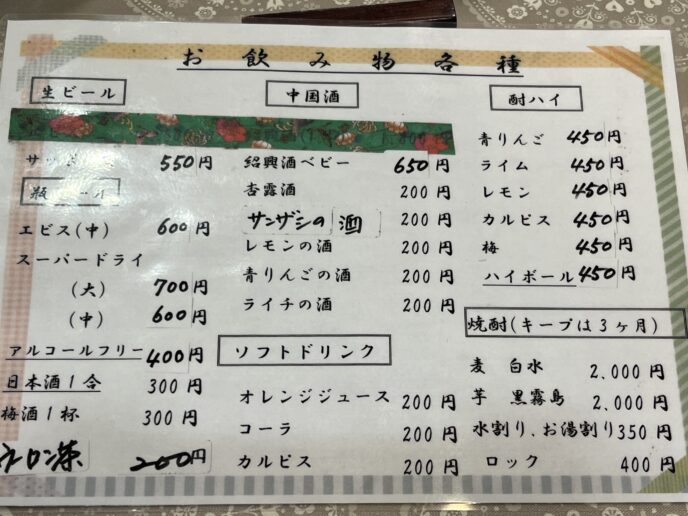 お飲み物各種
生ビール
550円
エビス(中) 600円
スーパードライ
(大) 700円
(中) 600円
アルコールフリー 400円
日本酒1合 300円
梅酒1杯 300円
ウーロン茶 200円
中国酒
紹興酒ベビー 650円
杏露酒 200円
サンザシの酒 200円
レモンの酒 200円
青りんごの酒 200円
ライチの酒 200円
ソフトドリンク
オレンジジュース 200円
コーラ 200円
カルピス 200円
酎ハイ
青りんご 450円
ライム 450円
レモン 450円
カルピス 450円
梅 450円
ハイボール 450円
焼酎(キープは3ヶ月)
麦 白水 2,000円
芋 黒霧島 2,000円
水割り、お湯割り 350円
ロック 400円